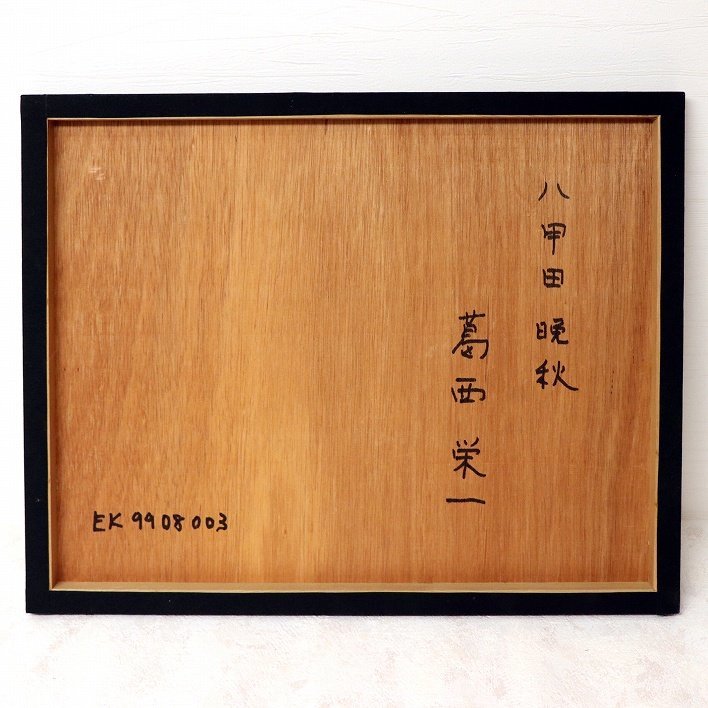 八甲田晩秋
葛西栄一
EK9908003